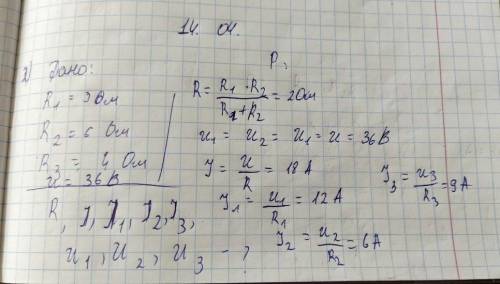 14. 04.
2) Дано:
R1 = 3 Ом
R2 = 6 Ом
R3 = 4 Ом
U = 36 В
R, J, J1, J2, J3,
U1, U2, U3 - ?
P,
R = R1 · R2 / R1 + R2 = 2 Ом
U1 = U2 = U1 = U = 36 В
J = U / R = 18 А
J1 = U1 / R1 = 12 А
J2 = U2 / R2 = 6 А
J3 = U3 / R3 = 9 А